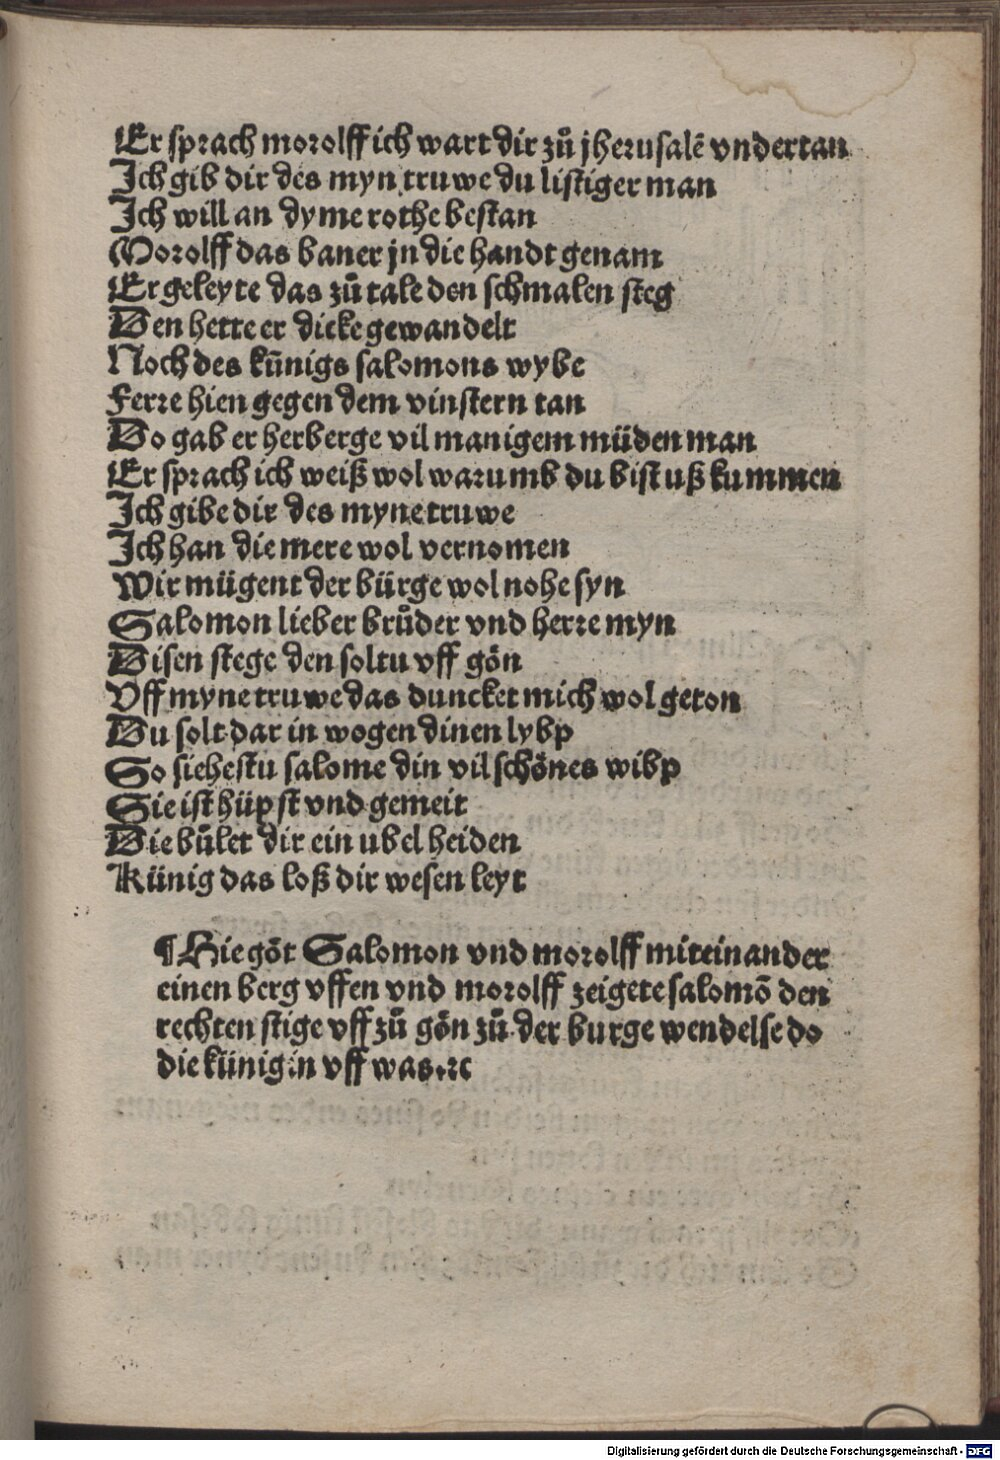 Er sprach morolff ich wart dir zů jherusalē vndertan
Ich gib dir des myn truwe du listiger man
Ich will an dyme rothe bestan
Morolff das baner jn die handt genam
Er geleyte das zů tale den schmalen steg
Den hette er dicke gewandelt
Noch des künigs salomons wybe
Ferre hien gegen dem vinstern tan
Do gab er herberge vil manigem müden man
Er sprach ich weiß wol warumb du bist uß kummen
Ich gibe dir des myne truwe
Ich han die mere wol vernomen
Wir mügent der bürge wol nohe syn
Salomon lieber brůder vnd herre myn
Disen stege den soltu vff gön
Vff myne truwe das duncket mich wol geton
Du solt dar in wogen dinen lybp
So siehestu salome din vil schönes wibp
Sie ist hüpst vnd gemeit
Die bůlet dir ein ubel heiden
Künig das loß dir wesen leyt
¶ Hie göt Salomon vnd morolff miteinander
einen berg vffen vnd morolff zeigete salomō den
rechten stige vff zů gön zů der burge wendelse do
die künigin vff was.ꝛc
Digitalisierung gefördert durch die Deutsche Forschungsgemeinschaft - DFG